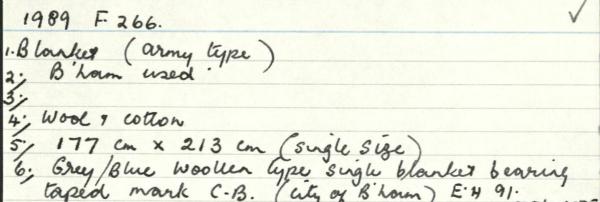 1989 F 266.
1. Blanket (army type)
2. B'ham used
3.
4. Wool & cotton
5. 177 cm x 213 cm (single size)
6. Grey/Blue woollen type single blanket bearing
taped mark C-B. (city of B'ham) E.H 91.